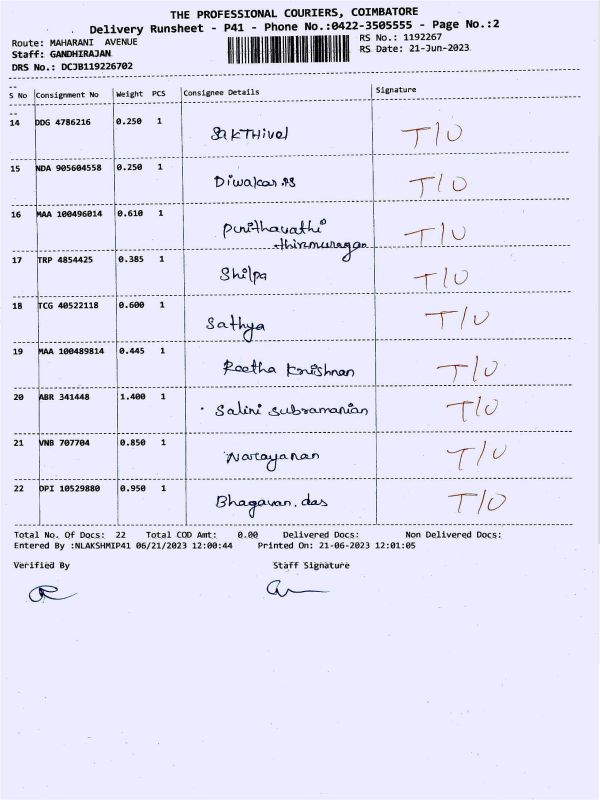 THE PROFESSIONAL COURIERS, COIMBATORE
Delivery Runsheet - P41 - Phone No.:0422-3505555 - Page No.:2
Route: MAHARANI AVENUE RS No.: 1192267
Staff: GANDHIRAJAN RS Date: 21-Jun-2023
DRS No.: DCJB119226702
--
S No Consignment No Weight PCS Consignee Details Signature
--
14 DDG 4786216 0.250 1 SakTHivel T/O
15 NDA 905604558 0.250 1 Diwakar.PS T/O
16 MAA 100496014 0.610 1 Punithavathi T/O
thirumurugan
17 TRP 4854425 0.385 1 Shilpa T/O
18 TCG 40522118 0.600 1 Sathya T/O
19 MAA 100489814 0.445 1 Reetha Krishnan T/O
20 ABR 341448 1.400 1 Salini Subramanian T/O
21 VNB 707704 0.850 1 Narayanan T/O
22 OPI 10529880 0.950 1 Bhagavan.das T/O
Total No. Of Docs: 22 Total COD Amt: 0.00 Delivered Docs: Non Delivered Docs:
Entered By :NLAKSHMIP41 06/21/2023 12:00:44 Printed On: 21-06-2023 12:01:05
Verified By Staff Signature